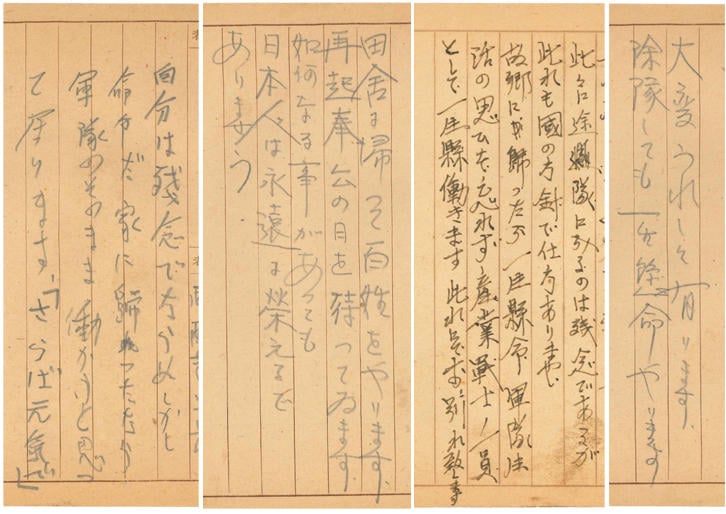 大変うれしく有ります。
除隊しても一生懸命やります
此々に除隊になるのは残念であるが
此れも國の方針で仕方ありません
故郷に帰ったら一生懸命軍隊生
活の思ひを忘れず産業戦士ノ一員
として一生懸働きます此れにて御別れ致します
田舎に帰って百姓をやります
再起奉公の日を待ってゐます。
如何なる事があっても
日本人は永遠に榮えるで
ありませう
自分は残念でならぬしかし
命令だ家に歸ったなら
軍隊のそのまま働かうと思っ
て居ります。「さらば元氣で」